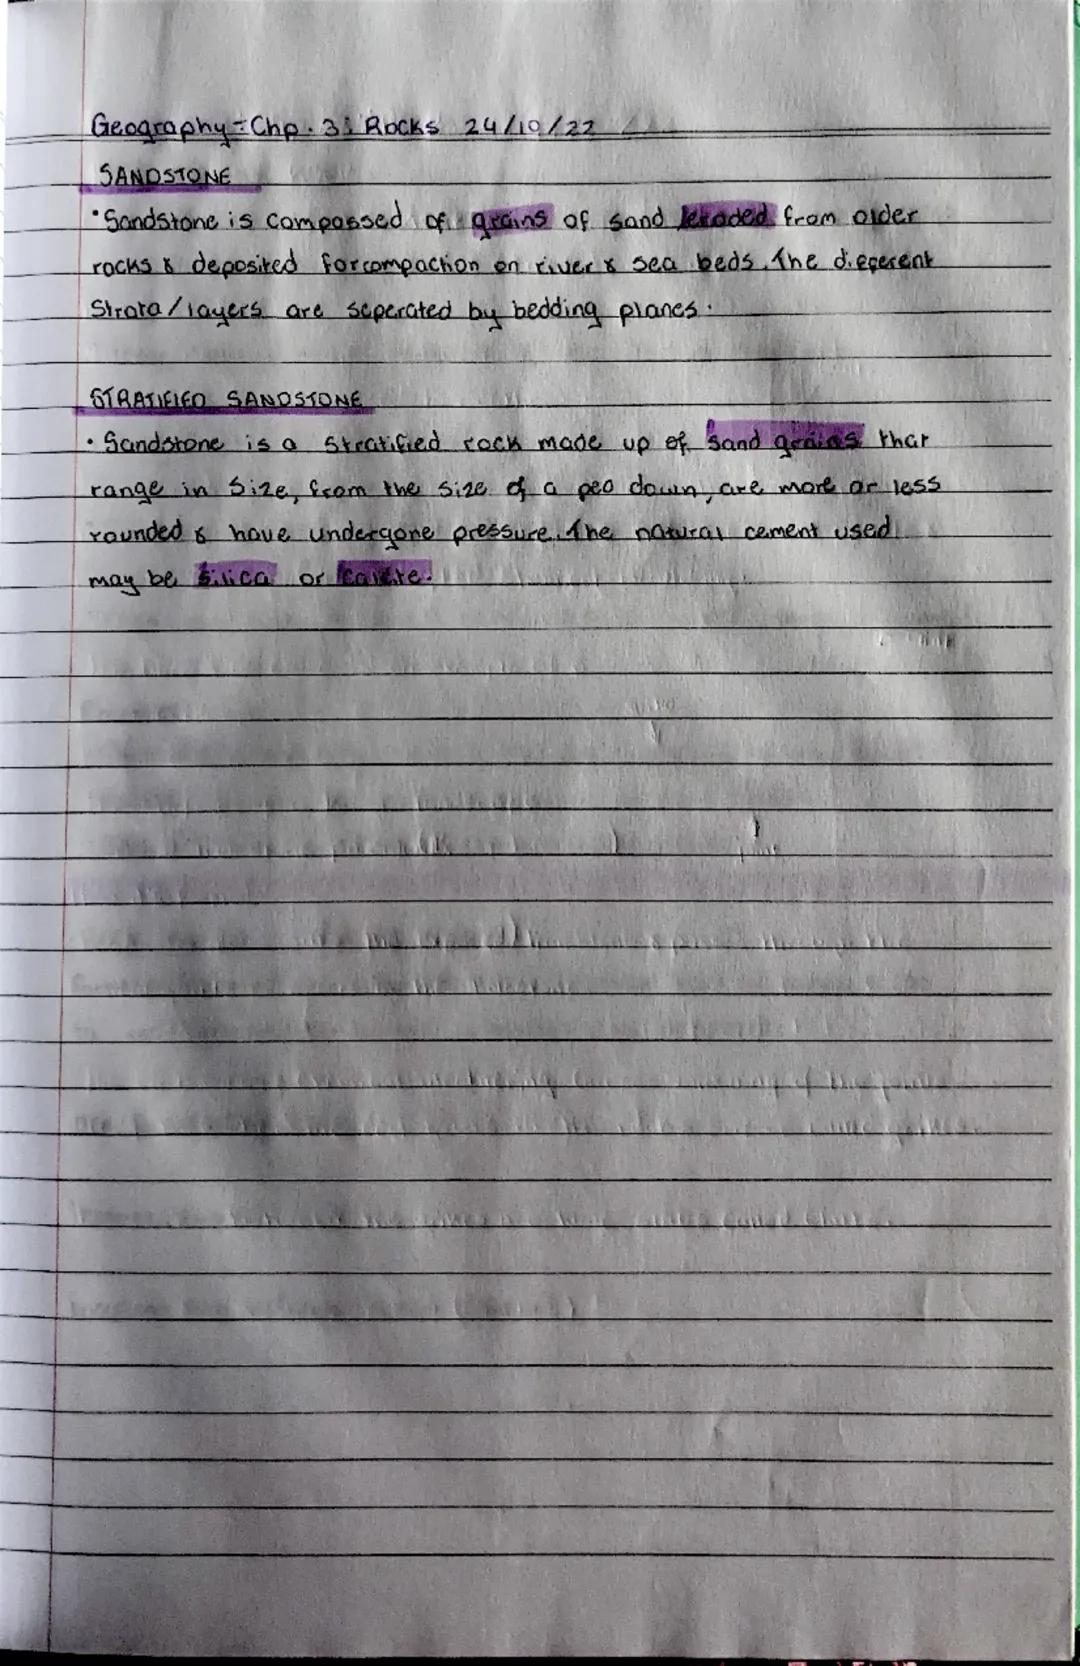 Geography - Chp. 3: Rocks 24/10/22
SANDSTONE
• Sandstone is compossed of grains of sand eroded from older
rocks & deposited for compaction on river & sea beds. The different
Strata/layers are seperated by bedding planes.
STRATIFIED SANDSTONE
• Sandstone is a stratified rock made up of sand grains that
range in size, from the size of a pea down, are more or less
rounded & have undergone pressure. The natural cement used
may be silica or calcite.